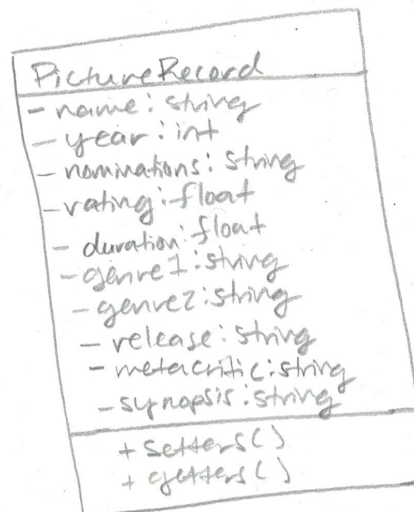 PictureRecord
- name: string
- year: int
- nominations: string
- rating: float
- duration: float
- genre1: string
- genre2: string
- release: string
- metacritic: string
- synopsis: string
+ setters()
+ getters()